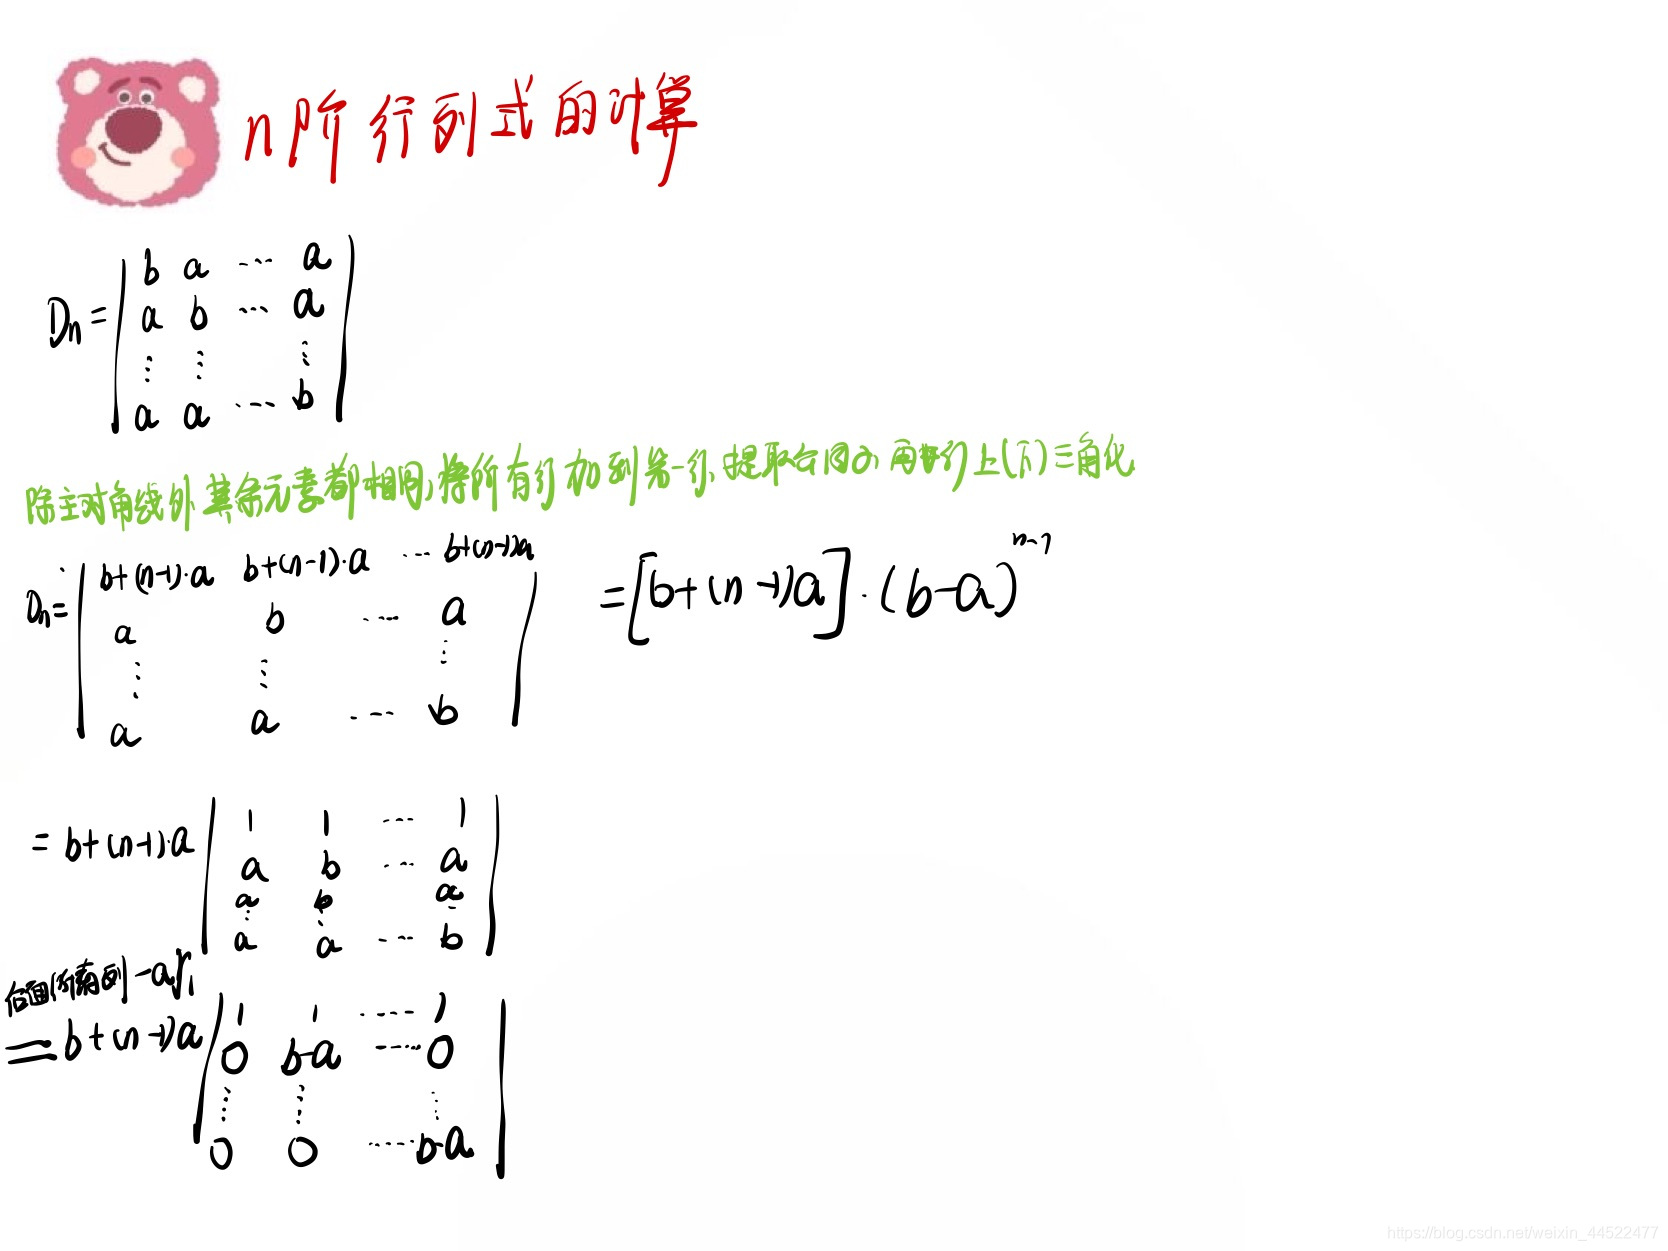 n阶行列式的计算
Dn= | b a ... a |
| a b ... a |
| ⋮ ⋮ ⋮ |
| a a ... b |
除主对角线外其余元素都相同,将所有行加到第一行,提取公因子,再进行上(下)三角化
Dn= | b+(n-1)·a b+(n-1)·a ... b+(n-1)a |
| a b ... a |
| ⋮ ⋮ ⋮ |
| a a ... b |
=[b+(n-1)a]·(b-a)^{n-1}
= b+(n-1)·a | 1 1 ... 1 |
| a b ... a |
| a b a |
| ⋮ ⋮ |
| a a ... b |
后面所有列-ar₁
= b+(n-1)a | 1 1 ... 1 |
| 0 b-a ... 0 |
| ⋮ ⋮ ⋮ |
| 0 0 ... b-a |
https://blog.csdn.net/weixin_44522477